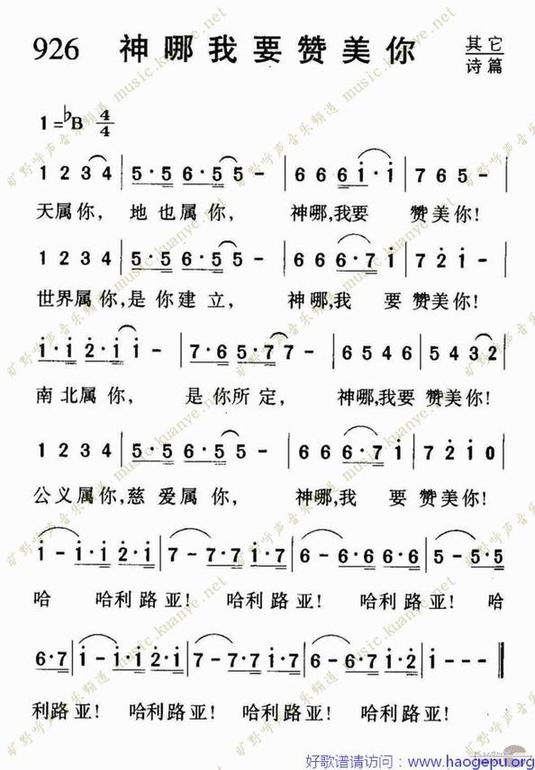 926 神哪我要赞美你 其它
诗篇
1=♭B 4/4
1 2 3 4 | 5·5 6·5 5 - | 6 6 6 i·i | 7 6 5 - |
天属你, 地也属你, 神哪,我要 赞美你!
1 2 3 4 | 5·5 6·5 5 - | 6 6 6 6·7 i | 7 2̇ i - |
世界属你,是你建立, 神哪,我 要 赞美你!
i·i 2̇·i i - | 7·6 5·7 7 - | 6 5 4 6 | 5 4 3 2 |
南北属你, 是你所定, 神哪,我要 赞美你!
1 2 3 4 | 5·5 6·5 5 - | 6 6 6·7 i | 7 2̇ i 0 |
公义属你,慈爱属你, 神哪,我 要 赞美你!
i - i·i 2̇·i | 7 - 7·7 i·7 | 6 - 6·6 7·6 | 5 - 5·5
哈 哈利路亚! 哈利路亚! 哈利路亚! 哈
6·7 | i - i·i 2̇·i | 7 - 7·7 i·7 | 6 - 6·7 i·2̇ | i - - - ‖
利路亚! 哈利路亚! 哈利路亚! 哈利路亚!
旷野吟声音乐频道 music.kuanye.net
好歌谱请访问：www.haogepu.org